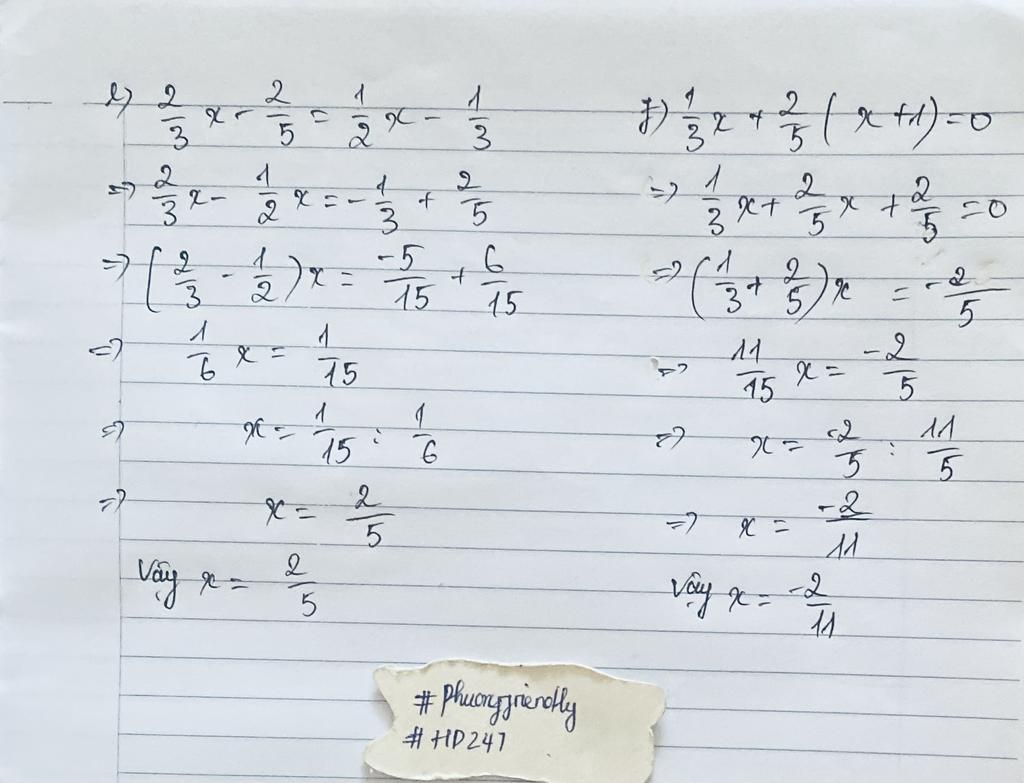 e) 2/3 x - 2/5 = 1/2 x - 1/3
=> 2/3 x - 1/2 x = - 1/3 + 2/5
=> (2/3 - 1/2) x = -5/15 + 6/15
=> 1/6 x = 1/15
=> x = 1/15 : 1/6
=> x = 2/5
Vậy x = 2/5
f) 1/3 x + 2/5 ( x + 1) = 0
=> 1/3 x + 2/5 x + 2/5 = 0
=> (1/3 + 2/5) x = - 2/5
=> 11/15 x = -2/5
=> x = -2/5 : 11/5
=> x = -2/11
Vậy x = -2/11
# Phuongfriendly
# HD247